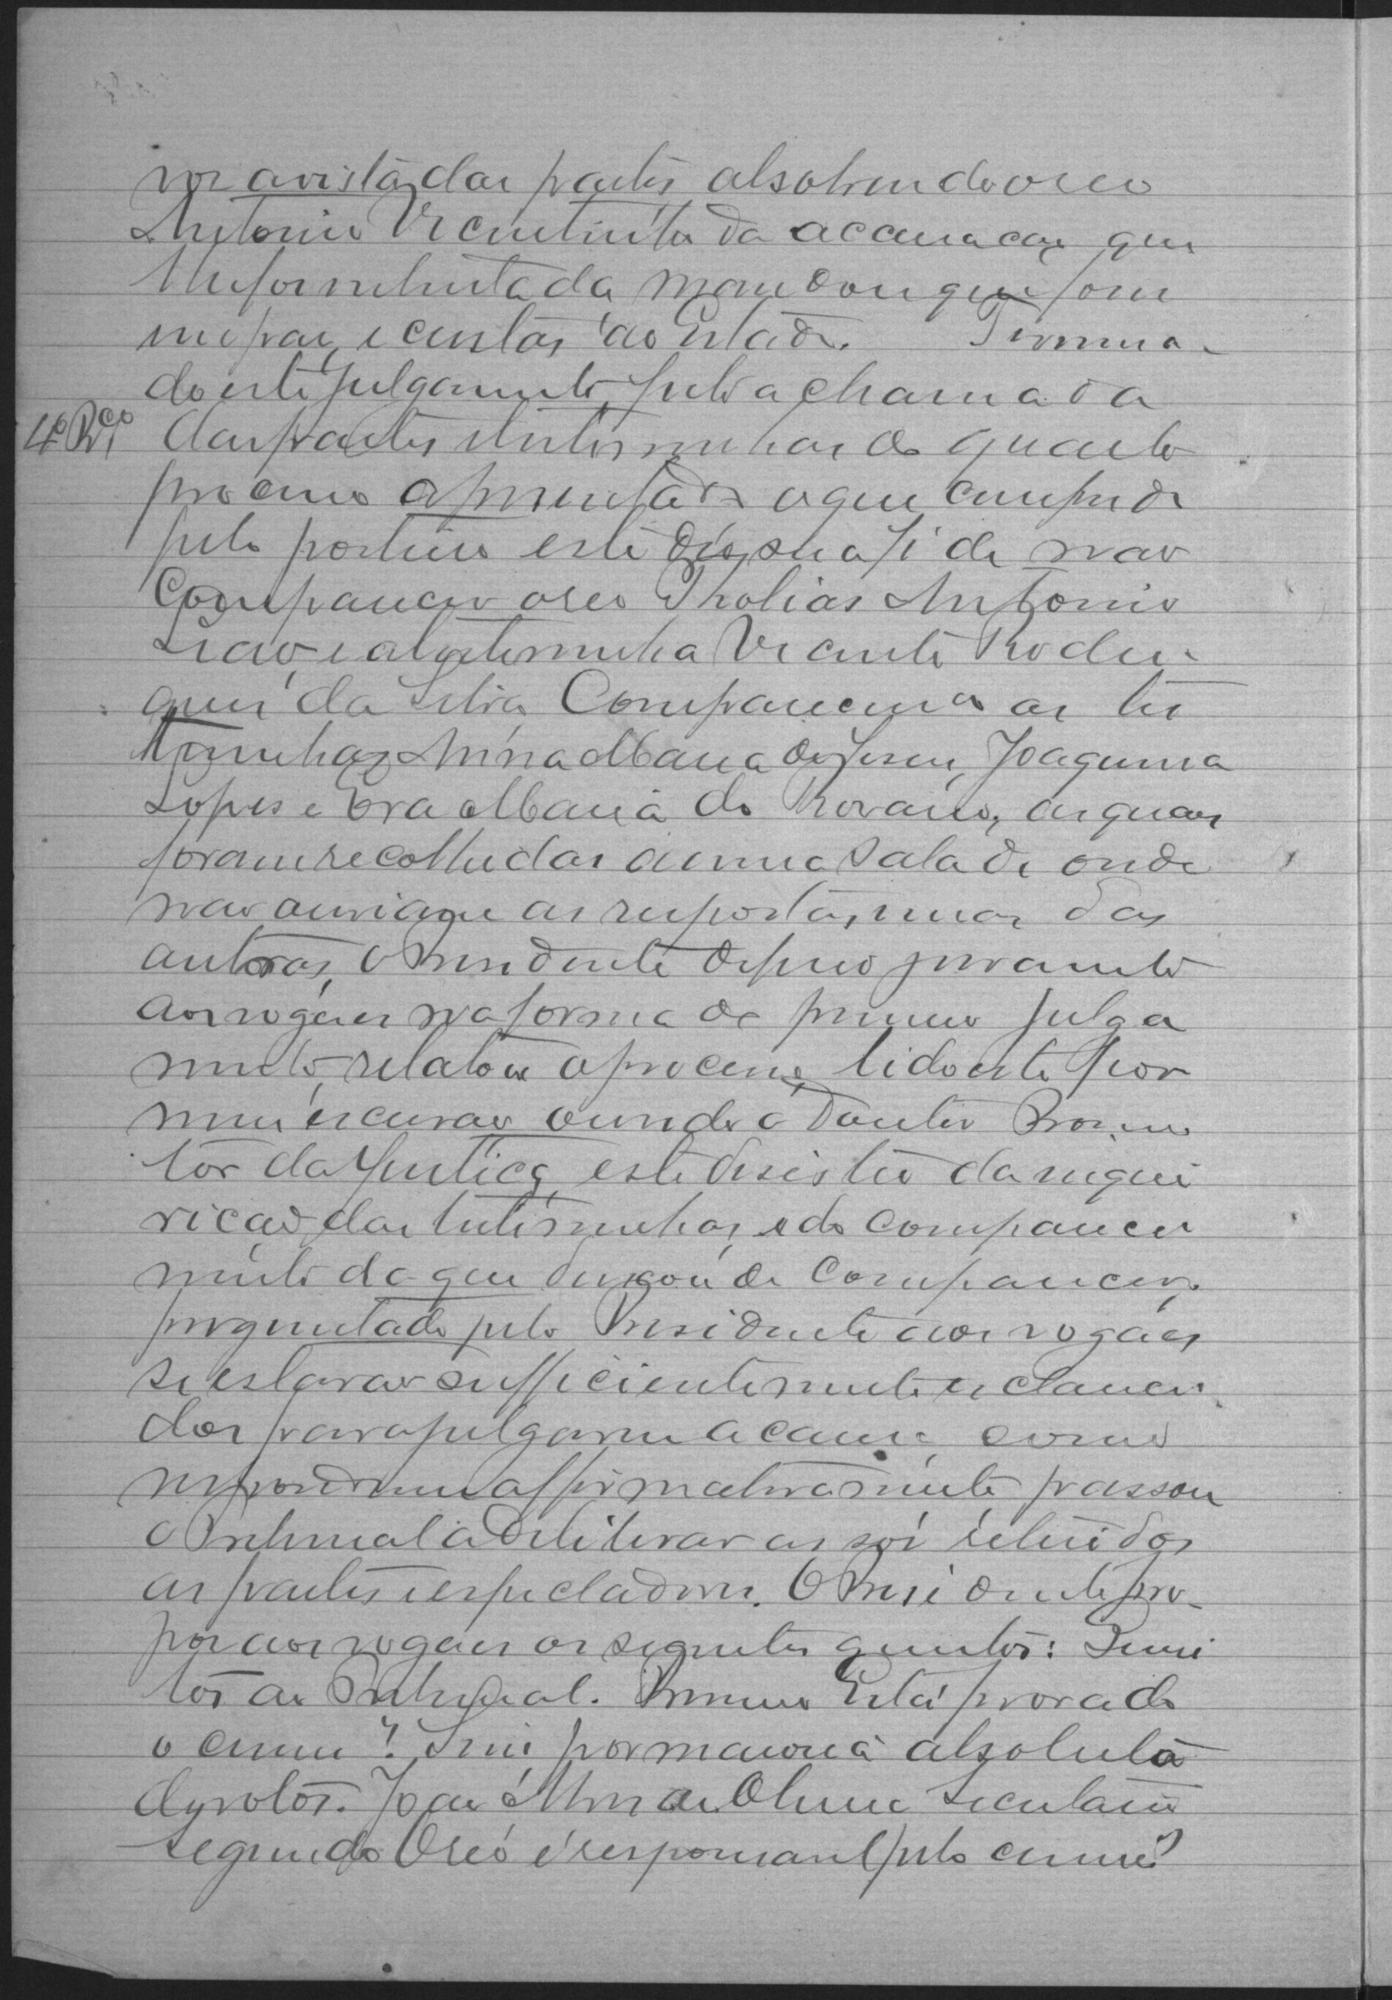 vor a vista das partes absolvendo o reo
Antonio Vicentinito da accusação que
lhe foi intentada mandou que fosse
em paz, e custas ao Estado. Termina-
do este julgamento, feita chamada
4º Pr.ço das partes e testemunhas do quarto
processo apresentado o que cumprido
pelo porteiro este deo sua fé de não
comparecer o reo Tholias Antonio
Leão, e a testemunha Vicente Rodri-
gues da Silva, Compareceu as tes
temunhas Anna Maria de Jesus, Joaquina
Lopes e Eva Maria do Rosario, as quaes
foram recolhidas a uma sala de onde
não ouviam as respostas, umas das
outras, o Presidente deferio juramento
aos vogaes na forma do primeiro julga
mento, relatou o processo, lido este por
mim escrivão ouvido o Doutor Promo
tor da Justiça, este desistio da inqui
rição das testemunhas, e do compareci
mento da que deixou de comparecer,
perguntado pelo Presidente aos vogaes
se estavão sufficientemente esclareci
dos para julgarem a causa, como
responderam affirmativamente passou
o Tribunal a deliberar a sós retirados
as partes e espectadores. O Presidente pro-
por aos vogaes os seguintes quesitos: Quesi
tos ao Tribunal. Primeiro Está provado
o crime? Sim por maioria absoluta
de votos. João Secretario
Segundo O reo é responsavel pelo crime?